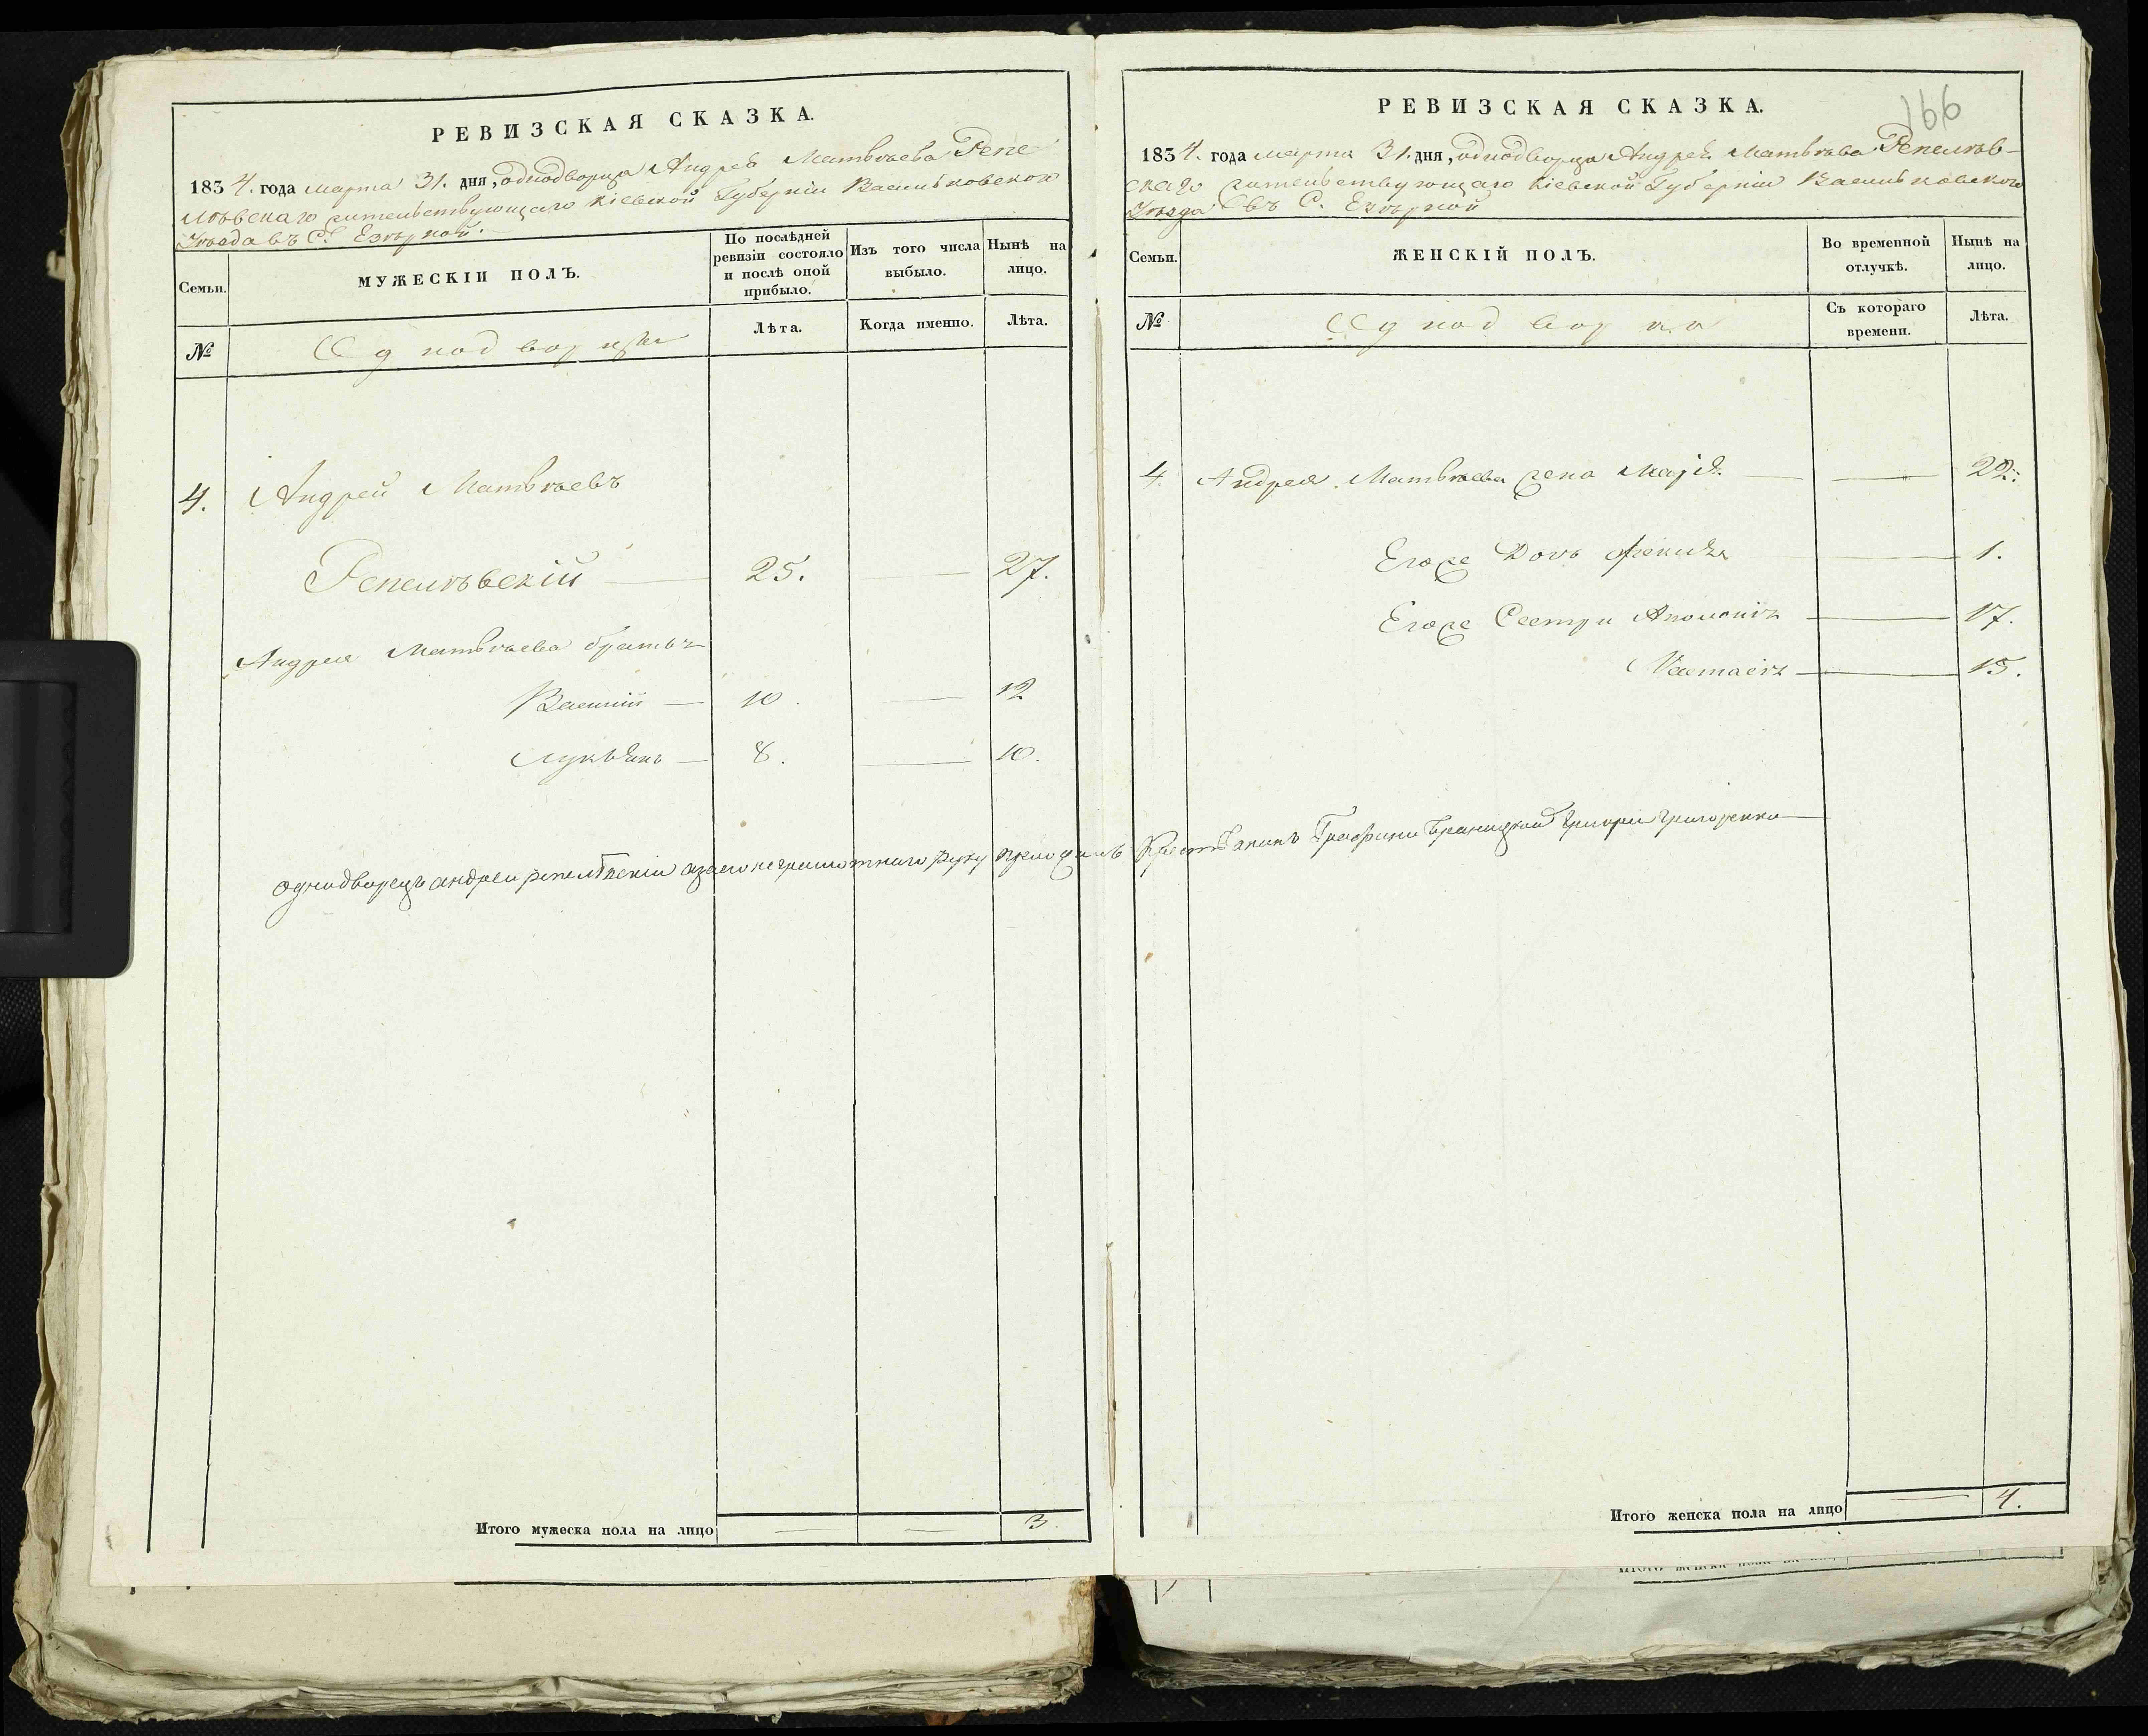 РЕВИЗСКАЯ СКАЗКА.
1834. года марта 31. дня, однодворца Андрея Матвѣева Репе
лѣвскаго жительствующаго Кіевской Губерніи Васильковского
Уѣзда въ С. Езѣрной.
Семьи.
МУЖЕСКІЙ ПОЛЪ.
По послѣдней ревизіи состояло и послѣ оной прибыло.
Изъ того числа выбыло.
Нынѣ на лицо.
№
Однодворцы
Лѣта.
Когда именно.
Лѣта.
4. Андрей Матвѣевъ
Репелѣвскій — 25. — 27.
Андрея Матвѣева братья
Василій — 10. — 12
Лукьянъ — 8. — 10.
однодворецъ андреи репелѣвскіи азаего неграмотнаго руку приложилъ Крестьянинъ Графини Браницкой Григорій Григоренко
Итого мужеска пола на лицо — — 3.
РЕВИЗСКАЯ СКАЗКА.
166
1834. года марта 31. дня, однодворца Андрея Матвѣева Репелѣв-
скаго жительствующаго Кіевской Губерніи Васильковского
Уѣзда въ С. Езѣрной
Семьи.
ЖЕНСКІЙ ПОЛЪ.
Во временной отлучкѣ.
Нынѣ на лицо.
№
Однодворки
Съ котораго времени.
Лѣта.
4. Андрея Матвѣева жена Марія — — 22.
Егоже Дочь — 1.
Егоже Сестры Аполонія — 17.
Настасія — 15.
Итого женска пола на лицо — 4.